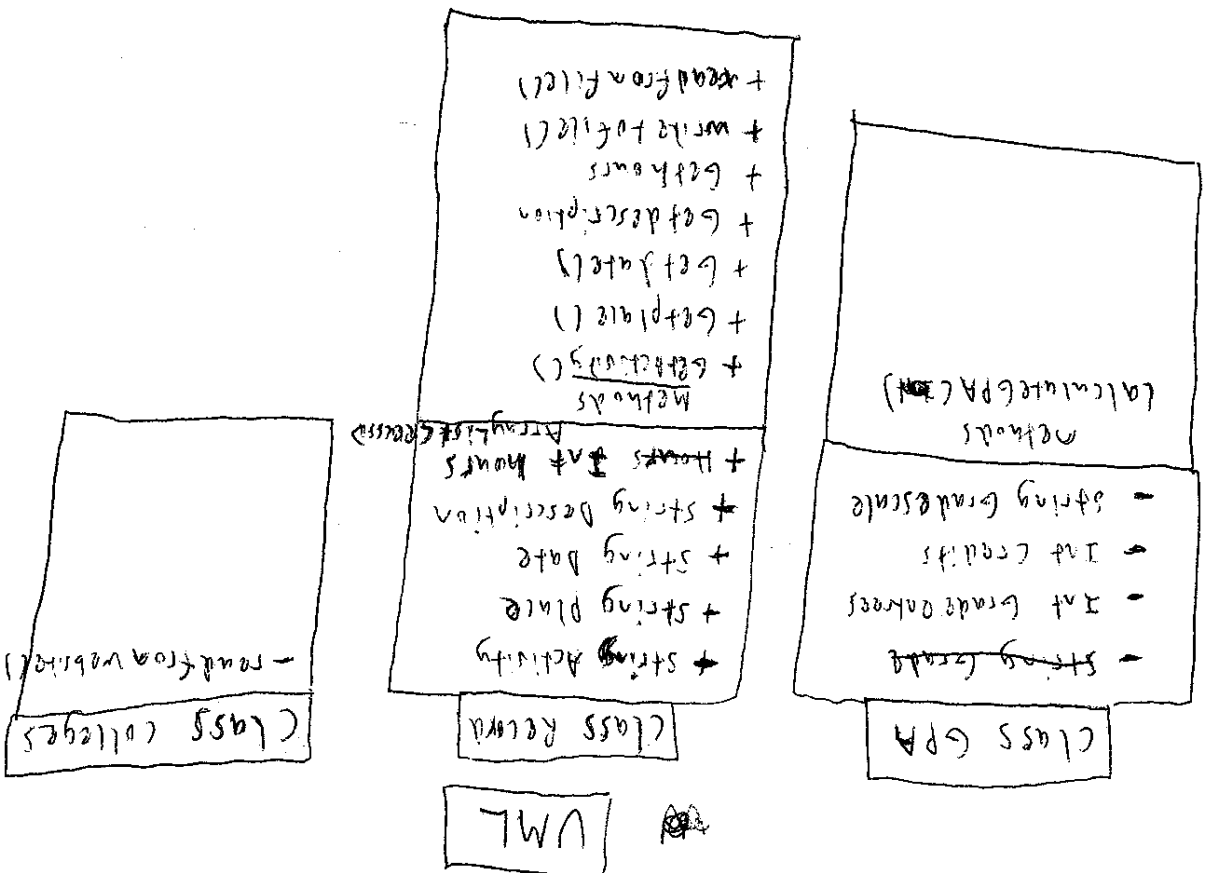 UML
Class GPA
- String Grade
- Int Grade
- Int Credits
- String Gradescale
Methods
CalculateGPA(
Class Record
+ String Activity
+ String Place
+ String Date
+ String Description
+ Hours Int hours
ArrayList<Records>
Methods
+ GetActivity()
+ Getplace()
+ Getdate()
+ Getdescription
+ Gethours
+ writetofile()
+ readfromfile()
Class Colleges
- readfromwebsite()